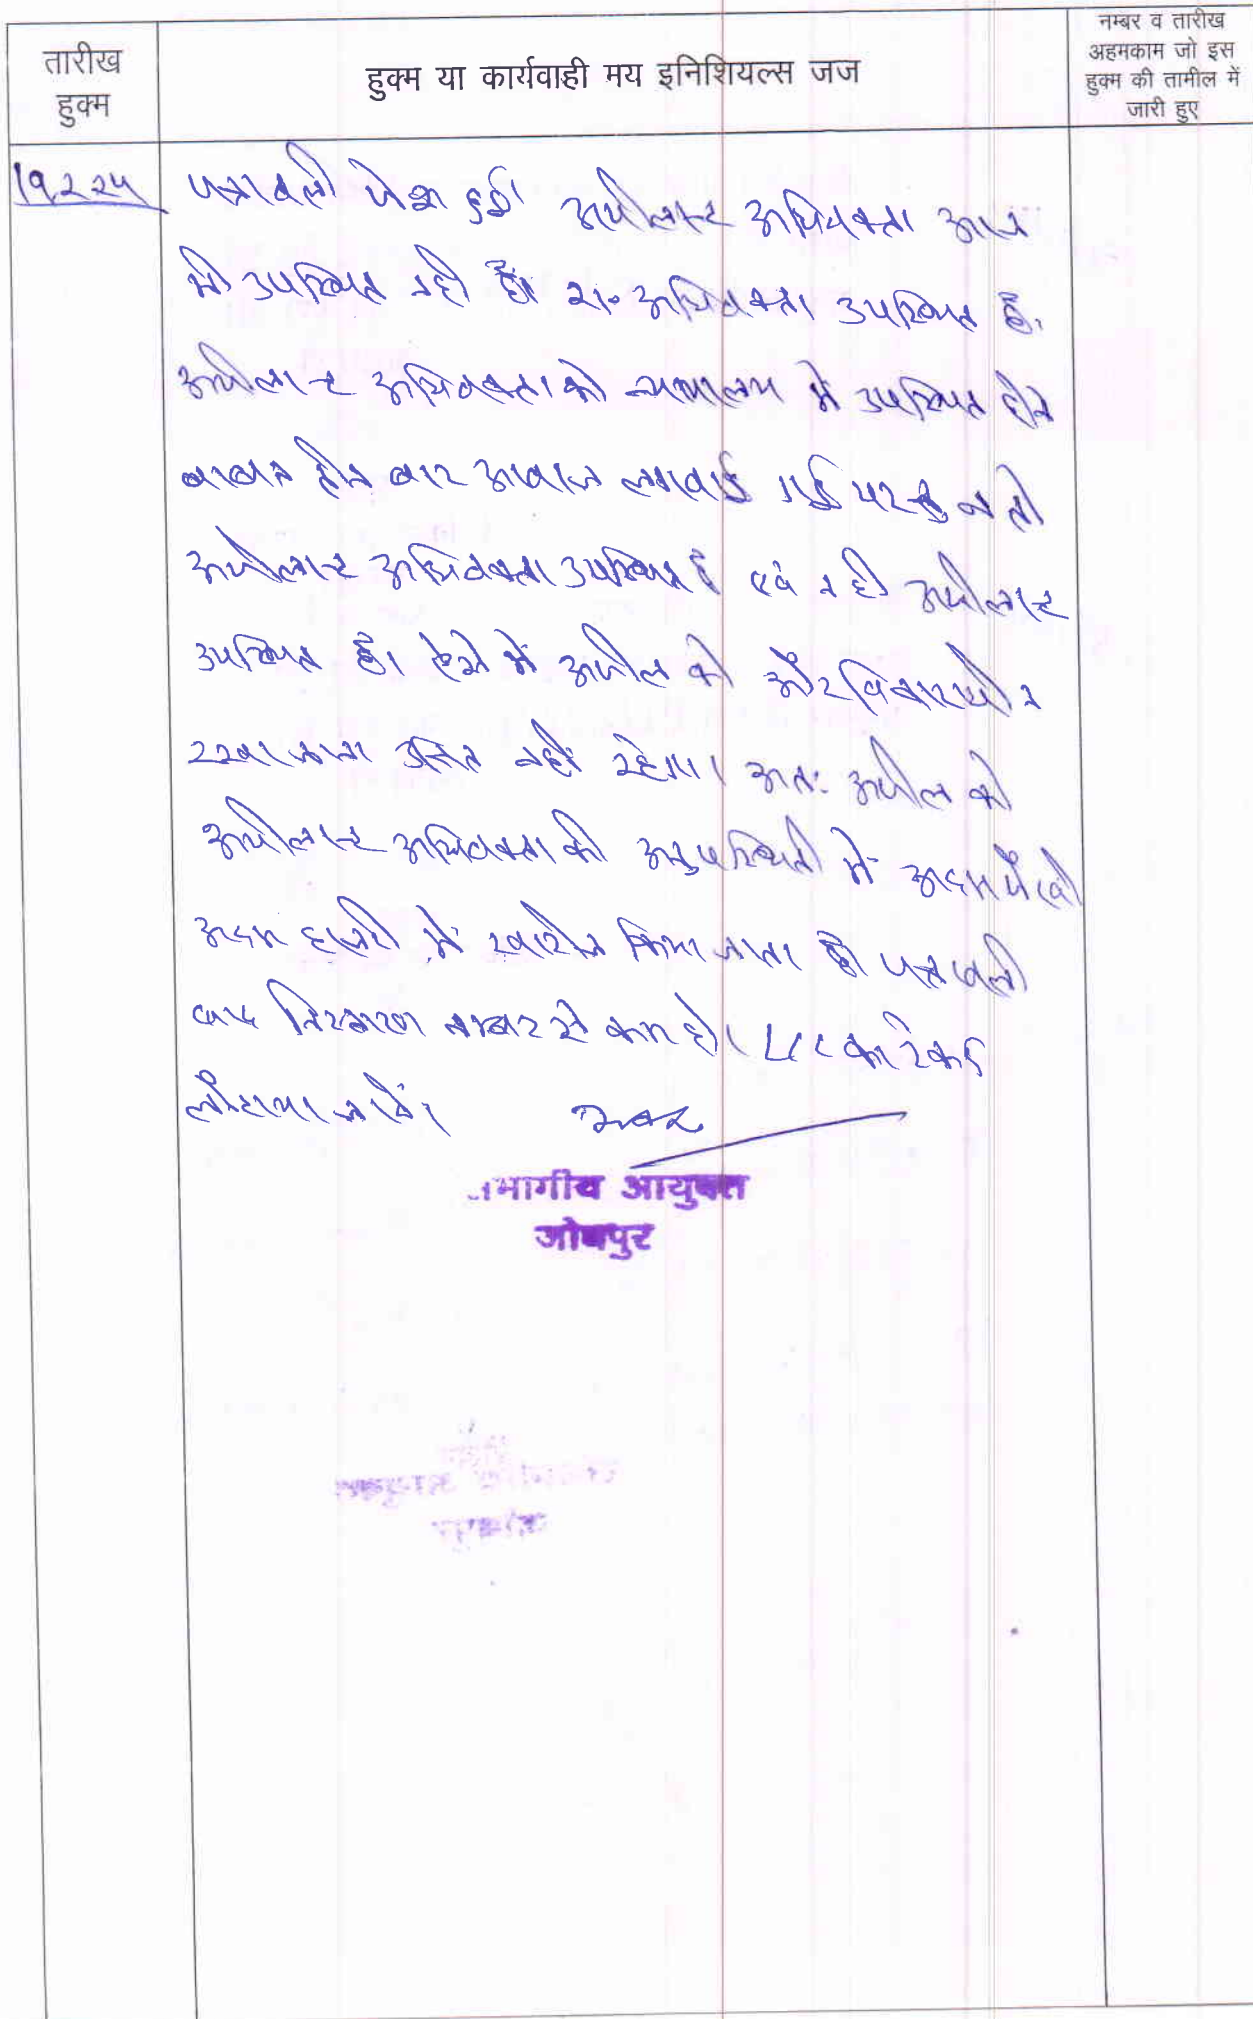 तारीख
हुक्म
हुक्म या कार्यवाही मय इनिशियल्स जज
नम्बर व तारीख
अहमकाम जो इस
हुक्म की तामील में
जारी हुए
19.2.25
पत्रावली पेश हुई। अपीलान्ट अधिवक्ता आज
भी उपस्थित नही है। रा. अधिवक्ता उपस्थित है।
अपीलान्ट अधिवक्ता को न्यायालय में उपस्थित होने
बाबत तीन बार आवाज लगवाई गई परन्तु न तो
अपीलान्ट अधिवक्ता उपस्थित है एवं न ही अपीलान्ट
उपस्थित है। ऐसे में अपील को और विचाराधीन
रखा जाना उचित नही रहेगा। अतः अपील को
अपीलान्ट अधिवक्ता की अनुपस्थिती में अदम पैरवी
अदम हाजरी में खारीज किया जाता है। पत्रावली
बाद निस्तारण नम्बर से कम हो। L/C का रेकर्ड
लौटाया जावें।
संभागीय आयुक्त
जोधपुर